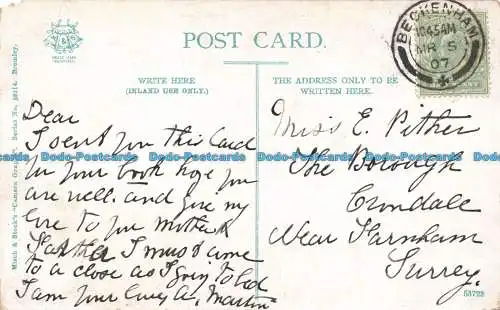 POST CARD.
WRITE HERE
(INLAND USE ONLY.)
THE ADDRESS ONLY TO BE
WRITTEN HERE.
BECKENHAM
10.45AM
MR 5
07
Dear
I sent you this Card
for your book hope you
are well. and give my
love to your mother &
Father I must come
to a close as I going to bed
I am your
Martin
Miss E. Pither
The Borough
Crondale
Near Farnham
Surrey.
53723
Dodo-Postcards Dodo-Postcards Dodo-Postcards Dodo-Postcards